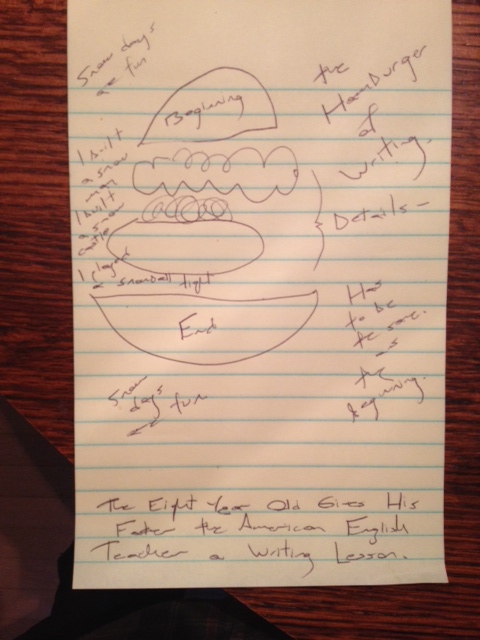 Snow days
are fun
The
Hamburger
of
Writing.
Beginning
I built
a snow
man
I built
a snow
castle
I played
a snowball fight
Details -
End
Has
to be
the same
as
the
beginning.
Snow
days
are fun
The Eight Year Old Gives His
Father the American English
Teacher a Writing Lesson.